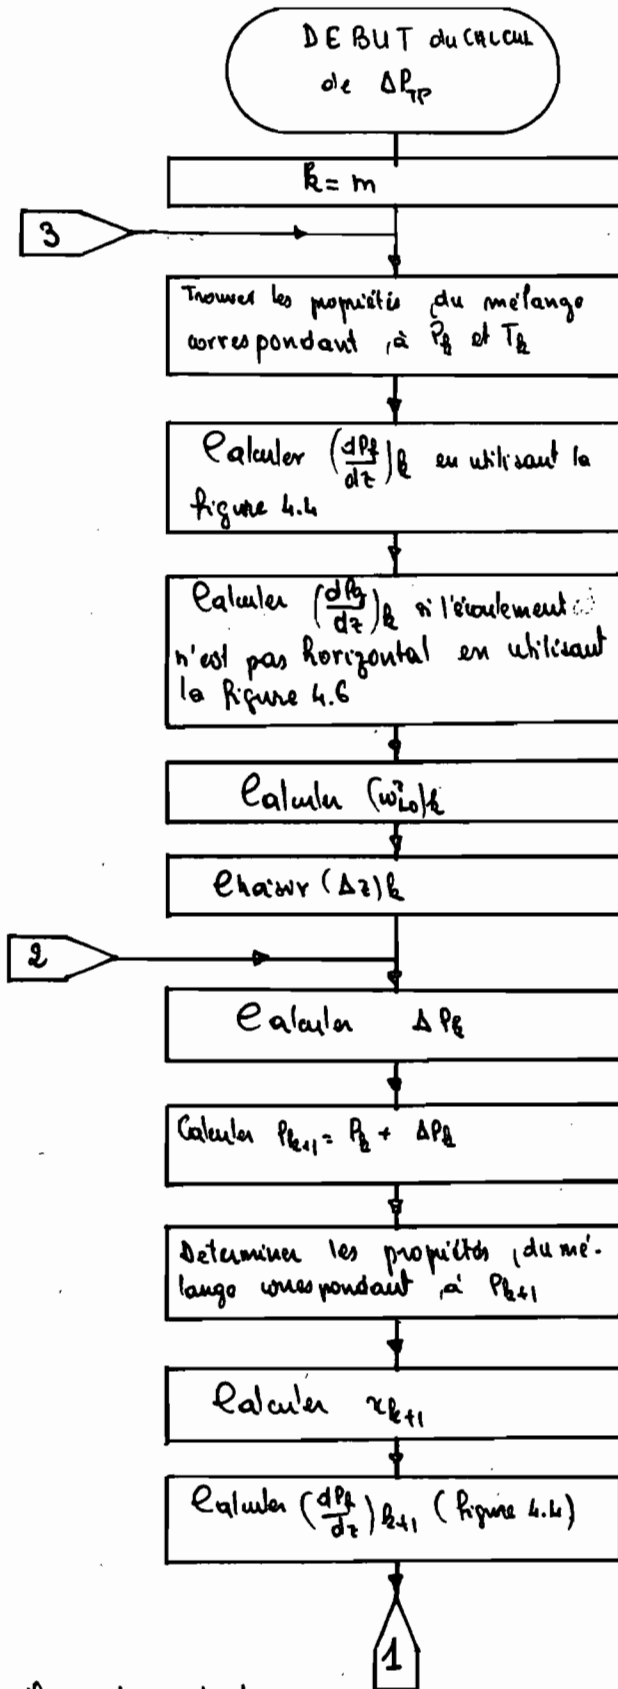 DEBUT du CALCUL
de ΔP_TP
k = m
3
Trouver les propriétés du mélange
correspondant à P_k et T_k
Calculer (dPf/dz)_k en utilisant la
figure 4.4
Calculer (dPg/dz)_k si l'écoulement
n'est pas horizontal en utilisant
la figure 4.6
Calculer
Choisir (Δz)_k
2
Calculer ΔP_k
Calculer P_k+1 = P_k + ΔP_k
Determiner les propriétés du mé-
lange correspondant à P_k+1
Calculer x_k+1
Calculer (dPf/dz)_k+1 (figure 4.4)
1